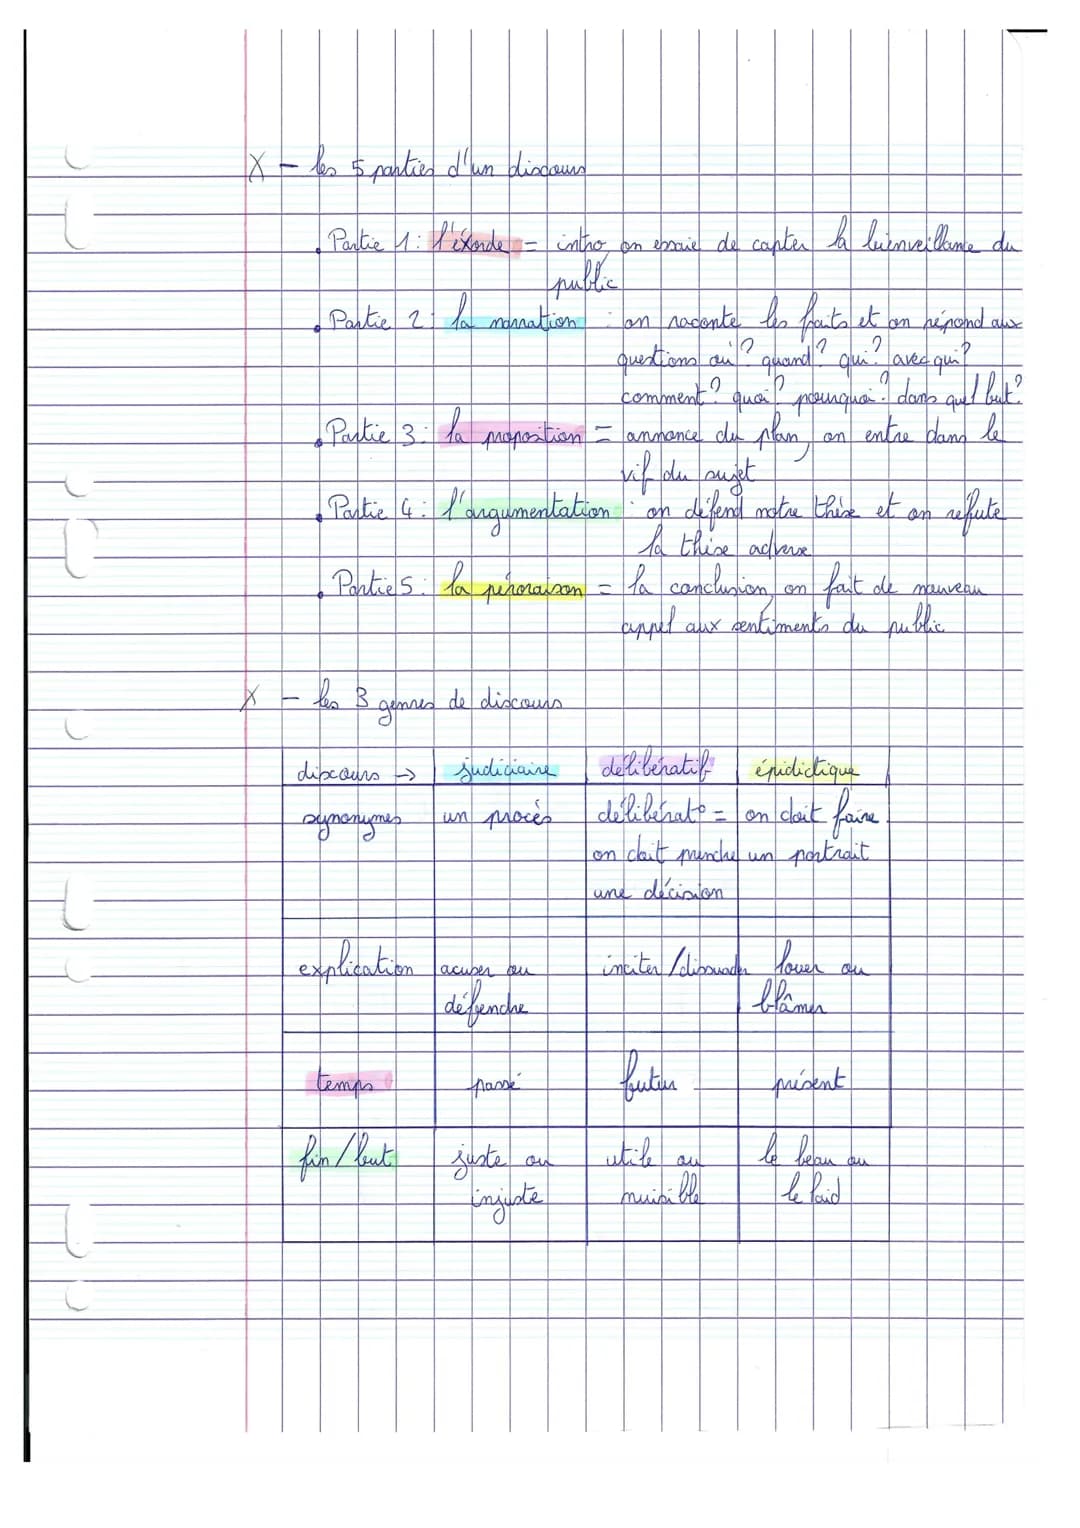 X - les 5 parties d'un discours
. Partie 1 : l'éxorde = intro on essaie de capter la bienveillance du
public
. Partie 2 : la narration : on raconte les faits et on répond aux
questions où ? quand ? qui ? avec qui ?
comment ? quoi ? pourquoi ? dans quel but ?
. Partie 3 : la proposition = annonce du plan, on entre dans le
vif du sujet
. Partie 4 : l'argumentation : on défend notre thèse et on réfute
la thèse adverse
. Partie 5 : la péroraison = la conclusion, on fait de nouveau
appel aux sentiments du public
X - les 3 genres de discours
discours → judiciaire délibératif épidictique
synonymes un procès délibérat° = on doit faire
on doit prendre un portrait
une décision
explication acuser ou inciter / dissuader louer ou
défendre blâmer
temps passé futur présent
fin / but juste ou utile ou le beau ou
injuste nuisible le laid